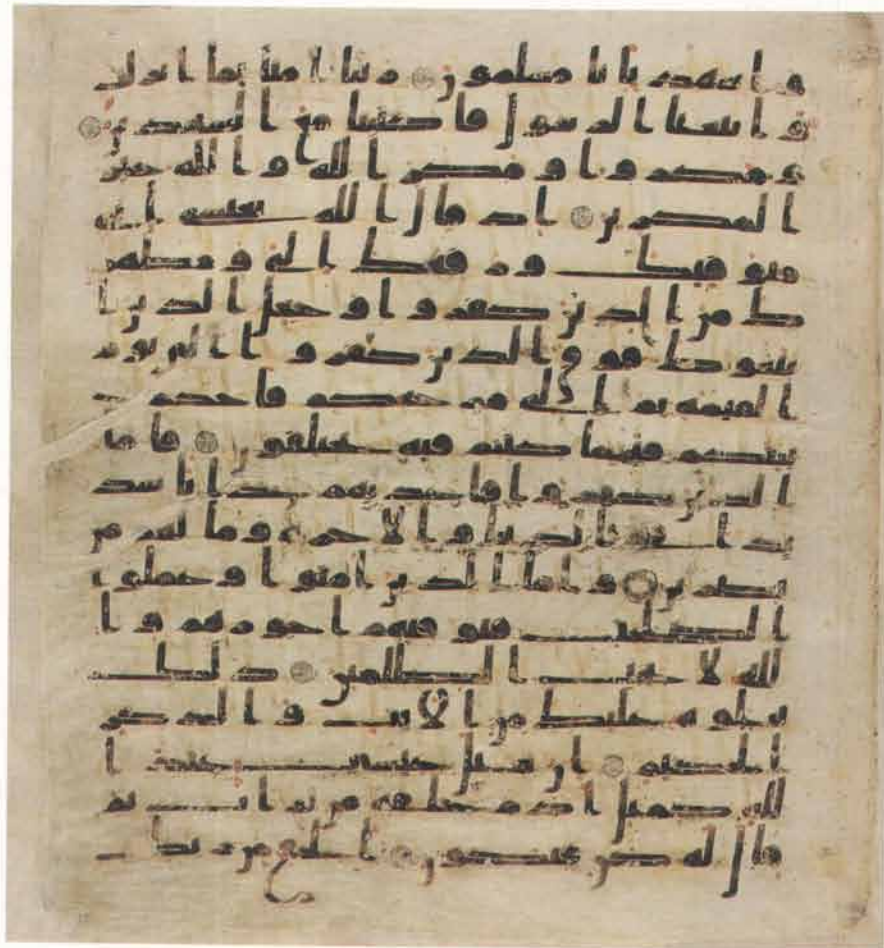 و اشهد بانا مسلمون ربنا امنا بما انزلت
و اتبعنا الرسول فاكتبنا مع الشهدين
و مكروا و مكر الله و الله خير
المكرين اذ قال الله يعيسى انى
متوفيك و رفعك الى و مطهر
ك من الذين كفروا و جعل الذين ا
تبعوك فوق الذين كفروا الى يوم
القيمة ثم الى مرجعكم فاحكم
بينكم فيما كنتم فيه تختلفون فاما
الذين كفروا فاعذبهم عذابا شد
يدا فى الدنيا و الاخرة و ما لهم من
نصرين و اما الذين امنوا و عملوا
الصلحت فيوفيهم اجورهم و ا
لله لا يحب الظلمين ذلك
نتلوه عليك من الايت و الذكر
الحكيم ان مثل عيسى عند ا
لله كمثل ادم خلقه من تراب ثم
قال له كن فيكون الحق من ربك